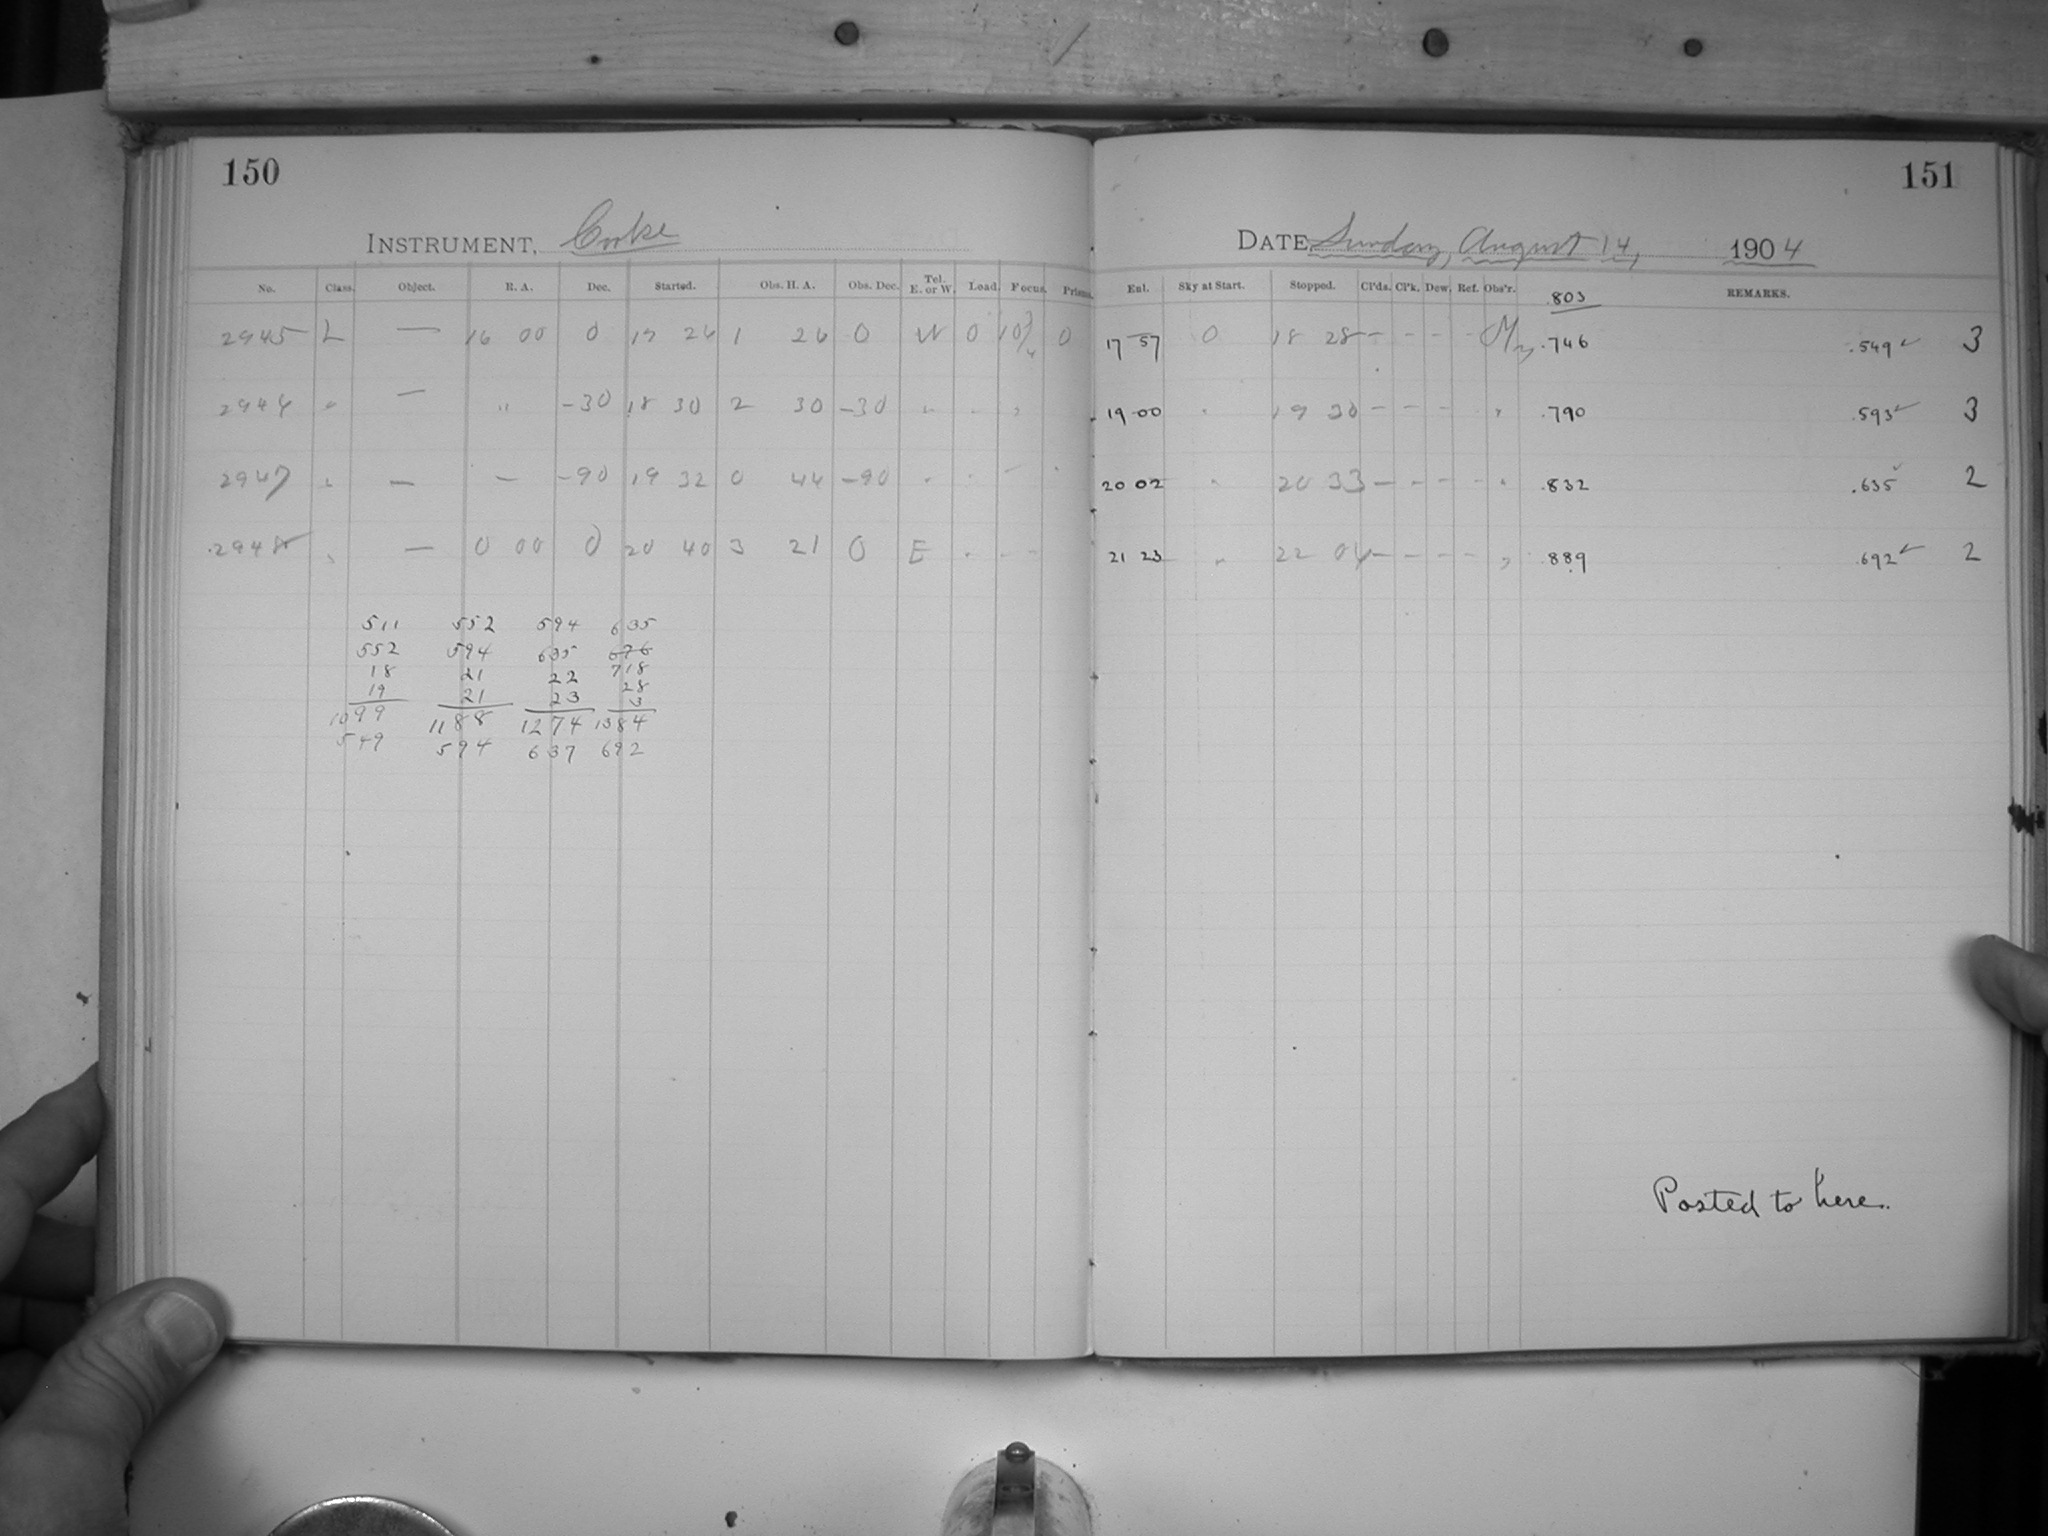 150
INSTRUMENT, Cooke
No. Class. Object. R. A. Dec. Started. Obs. H. A. Obs. Dec. Tel. E. or W. Load. Focus. Prisms.
2945 L — 16 00 0 17 26 1 26 0 W 0 10 3/4 0
2946 " — " -30 18 30 2 30 -30 " " "
2947 " — — -90 19 32 0 44 -90 " " "
2948 " — 0 00 0 20 40 3 21 0 E " - -
511 552 594 635
552 594 635 676
718
18 21 22 28
19 21 23 3
1099 1188 1274 1384
549 594 637 692
151
DATE, Sunday, August 14, 1904
Enl. Sky at Start. Stopped. Cl'ds. Cl'k. Dew. Ref. Obs'r. .803 REMARKS.
17 57 0 18 28 - - - - .746 .549 ✓ 3
19 00 " 19 30 - - - " .790 .593 ✓ 3
20 02 " 20 33 - - - - " .832 .635 ✓ 2
21 23 " 22 04 - - - - " .889 .692 ✓ 2
Posted to here.